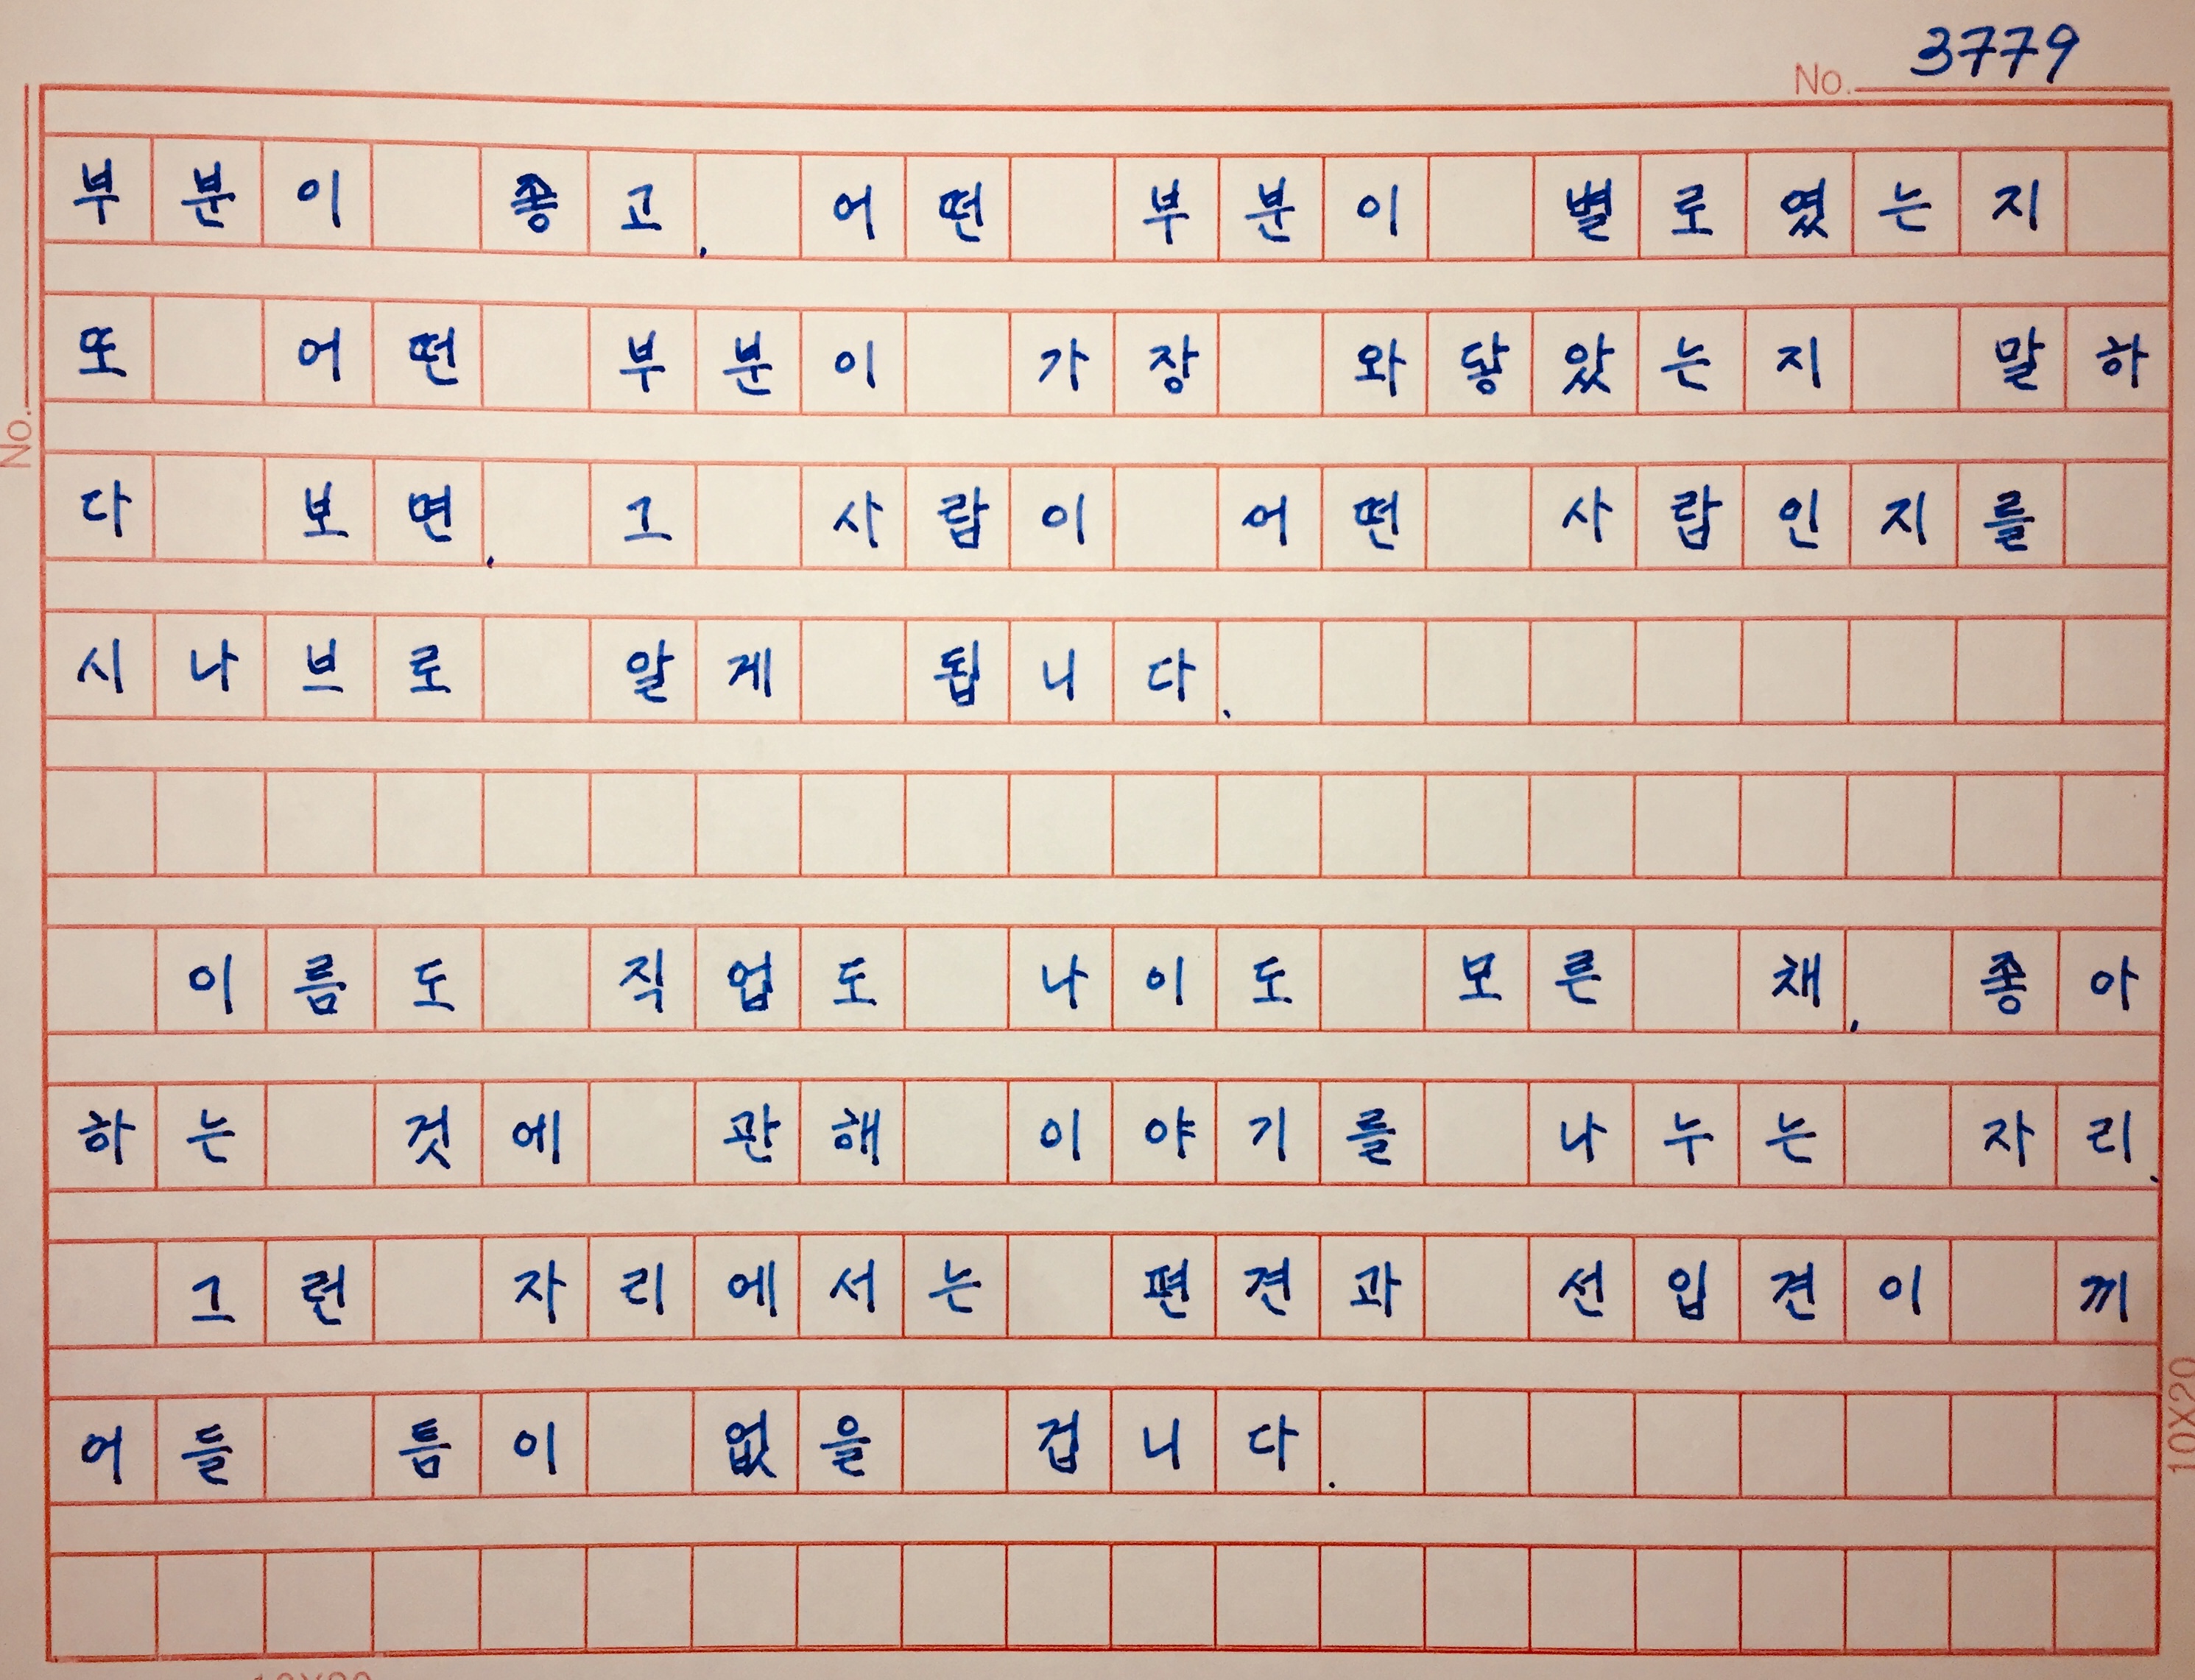 No. 3779
부분이 좋고, 어떤 부분이 별로였는지
또 어떤 부분이 가장 와닿았는지 말하
다 보면, 그 사람이 어떤 사람인지를
시나브로 알게 됩니다.
이름도 직업도 나이도 모른 채, 좋아
하는 것에 관해 이야기를 나누는 자리.
그런 자리에서는 편견과 선입견이 끼
어들 틈이 없을 겁니다.
No.
10X20